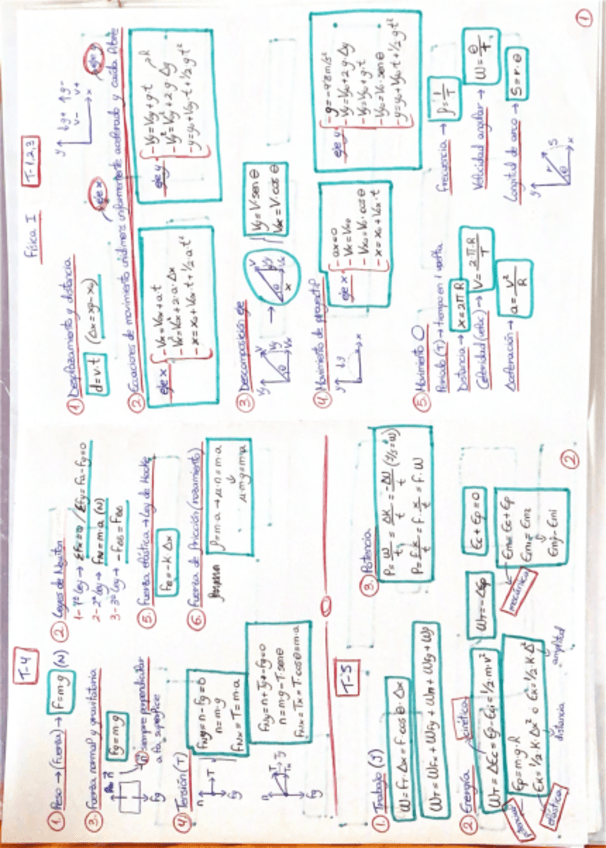 Física I
T-1,2,3
① Desplazamiento y distancia
d=v·t (Δx=xf-x0)
y ↓g+ ↑g-
v- v+
x
② Ecuaciones de movimiento unidimens. uniformemente acelerado y caída libre
eje x
eje y
eje x
-Vx=V0x+a·t
-Vx²=V0x²+2·a·Δx
-x=x0+V0x·t+1/2 a·t²
eje y
-Vy=V0y+g·t
Vy²=V0y²+2·g·Δy
-y=y0+V0y·t+1/2 g·t²
③ Descomposición eje
Vy=V·senθ
Vx=V·cosθ
④ Movimiento de proyectil
eje x
-ax=0
-Vx=V0x
-V0x=V0·cosθ
-x=x0+V0x·t
eje y
-g=-9'8m/s²
-Vy²=V0y²+2·g·Δy
-Vy=V0y+g·t
-V0y=V0·senθ
-y=y0+V0y·t+1/2 g·t²
⑤ Movimiento O
Periodo (T)→tiempo en 1 vuelta
Distancia→ x=2πR
Celeridad (veloc)→ V=2πR/T
Aceleración→ a=v²/R
Frecuencia→ f=1/T
Velocidad angular→ W=θ/T
Longitud de arco→ S=r·θ
①
T-4
① Peso→(fuerza)→ F=m·g (N)
③ Fuerza normal y gravitatoria
Fg=m·g
n siempre perpendicular
a la superficie
④ Tensión (T)
n-Fg=0
n=m·g
FNx=T=m·a
n=m·g-T·senθ
FNx=Tx=T·cosθ=m·a
② Leyes de Newton
1-1ª Ley→
2-2ª Ley→ FN=m·a (N)
3-3ª Ley→
⑤ Fuerza elástica→Ley de Hooke
FE=-K·Δx
⑥ Fuerza de fricción (rozamiento)
μ·m·g=m·a
T-5
① Trabajo (J)
W=F·Δx=F·cosθ·Δx
WT=WFx+WFy+Wn+WFg+Wp
② Energía
cinética
WT=ΔEc=Ef-Ei=1/2·m·v²
Ep=m·g·h
elástica
distancia
amplitud
③ Potencia
WT=-ΔEp
Ec+Ep=0
mecánica
Em=Ec+Ep
Em1=Em2
②